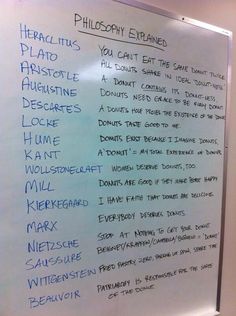 PHILOSOPHY EXPLAINED
HERACLITUS YOU CAN'T EAT THE SAME DONUT TWICE
PLATO ALL DONUTS SHARE IN IDEAL DONUT-NESS
ARISTOTLE A DONUT CONTAINS ITS DONUT-NESS
AUGUSTINE DONUTS NEED GRACE TO BE REALLY DONUTS
DESCARTES A DONUT HOLE PROVES THE EXISTENCE OF THE DONUT
LOCKE DONUTS TASTE GOOD TO ME.
HUME DONUTS EXIST BECAUSE I IMAGINE DONUTS.
KANT A "DONUT" = MY TOTAL EXPERIENCE OF DONUTS
WOLLSTONECRAFT WOMEN DESERVE DONUTS, TOO.
MILL DONUTS ARE GOOD IF THEY MAKE PEOPLE HAPPY
KIERKEGAARD I HAVE FAITH THAT DONUTS ARE DELICIOUS.
MARX EVERYBODY DESERVES DONUTS
NIETZSCHE STOP AT NOTHING TO GET YOUR DONUT
SAUSSURE BEIGNET/KRAPFEN/CIAMBELLA/BUÑUELO = "DONUT"
WITTGENSTEIN FRIED PASTRY, ZERO, SPARE TIRE
BEAUVOIR PATRIARCHY IS RESPONSIBLE FOR THE SHAPE
OF THE DONUT.